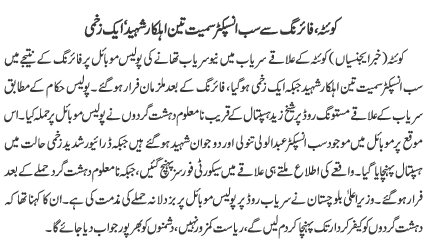 کوئٹہ، فائرنگ سے سب انسپکٹر سمیت تین اہلکار شہید، ایک زخمی
کوئٹہ (خبر ایجنسیاں) کوئٹہ کے علاقے سریاب میں نیو سریاب تھانے کی پولیس موبائل پر فائرنگ کے نتیجے میں
سب انسپکٹر سمیت تین اہلکار شہید جبکہ ایک زخمی ہوگیا، فائرنگ کے بعد ملزمان فرار ہوگئے۔ پولیس حکام کے مطابق
سریاب کے علاقے مستونگ روڈ پر شیخ زید ہسپتال کے قریب نامعلوم دہشت گردوں نے پولیس موبائل پر حملہ کیا۔ اس
موقع پر موبائل میں موجود سب انسپکٹر عبدالولی تنولی اور دو جوان شہید ہوگئے ہیں جبکہ ڈرائیور شدید زخمی حالت میں
ہسپتال پہنچایا گیا۔ واقعے کی اطلاع ملتے ہی علاقے میں سیکورٹی فورسز پہنچ گئیں، جبکہ نامعلوم دہشت گرد حملے کے بعد
فرار ہوگئے۔ وزیراعلیٰ بلوچستان نے سریاب روڈ پر پولیس موبائل پر بزدلانہ حملے کی مذمت کی ہے۔ ان کا کہنا تھا کہ
دہشت گردوں کو کیفر کردار تک پہنچا کر دم لیں گے، ریاست کمزور نہیں، دشمنوں کو بھرپور جواب دیا جائے گا۔